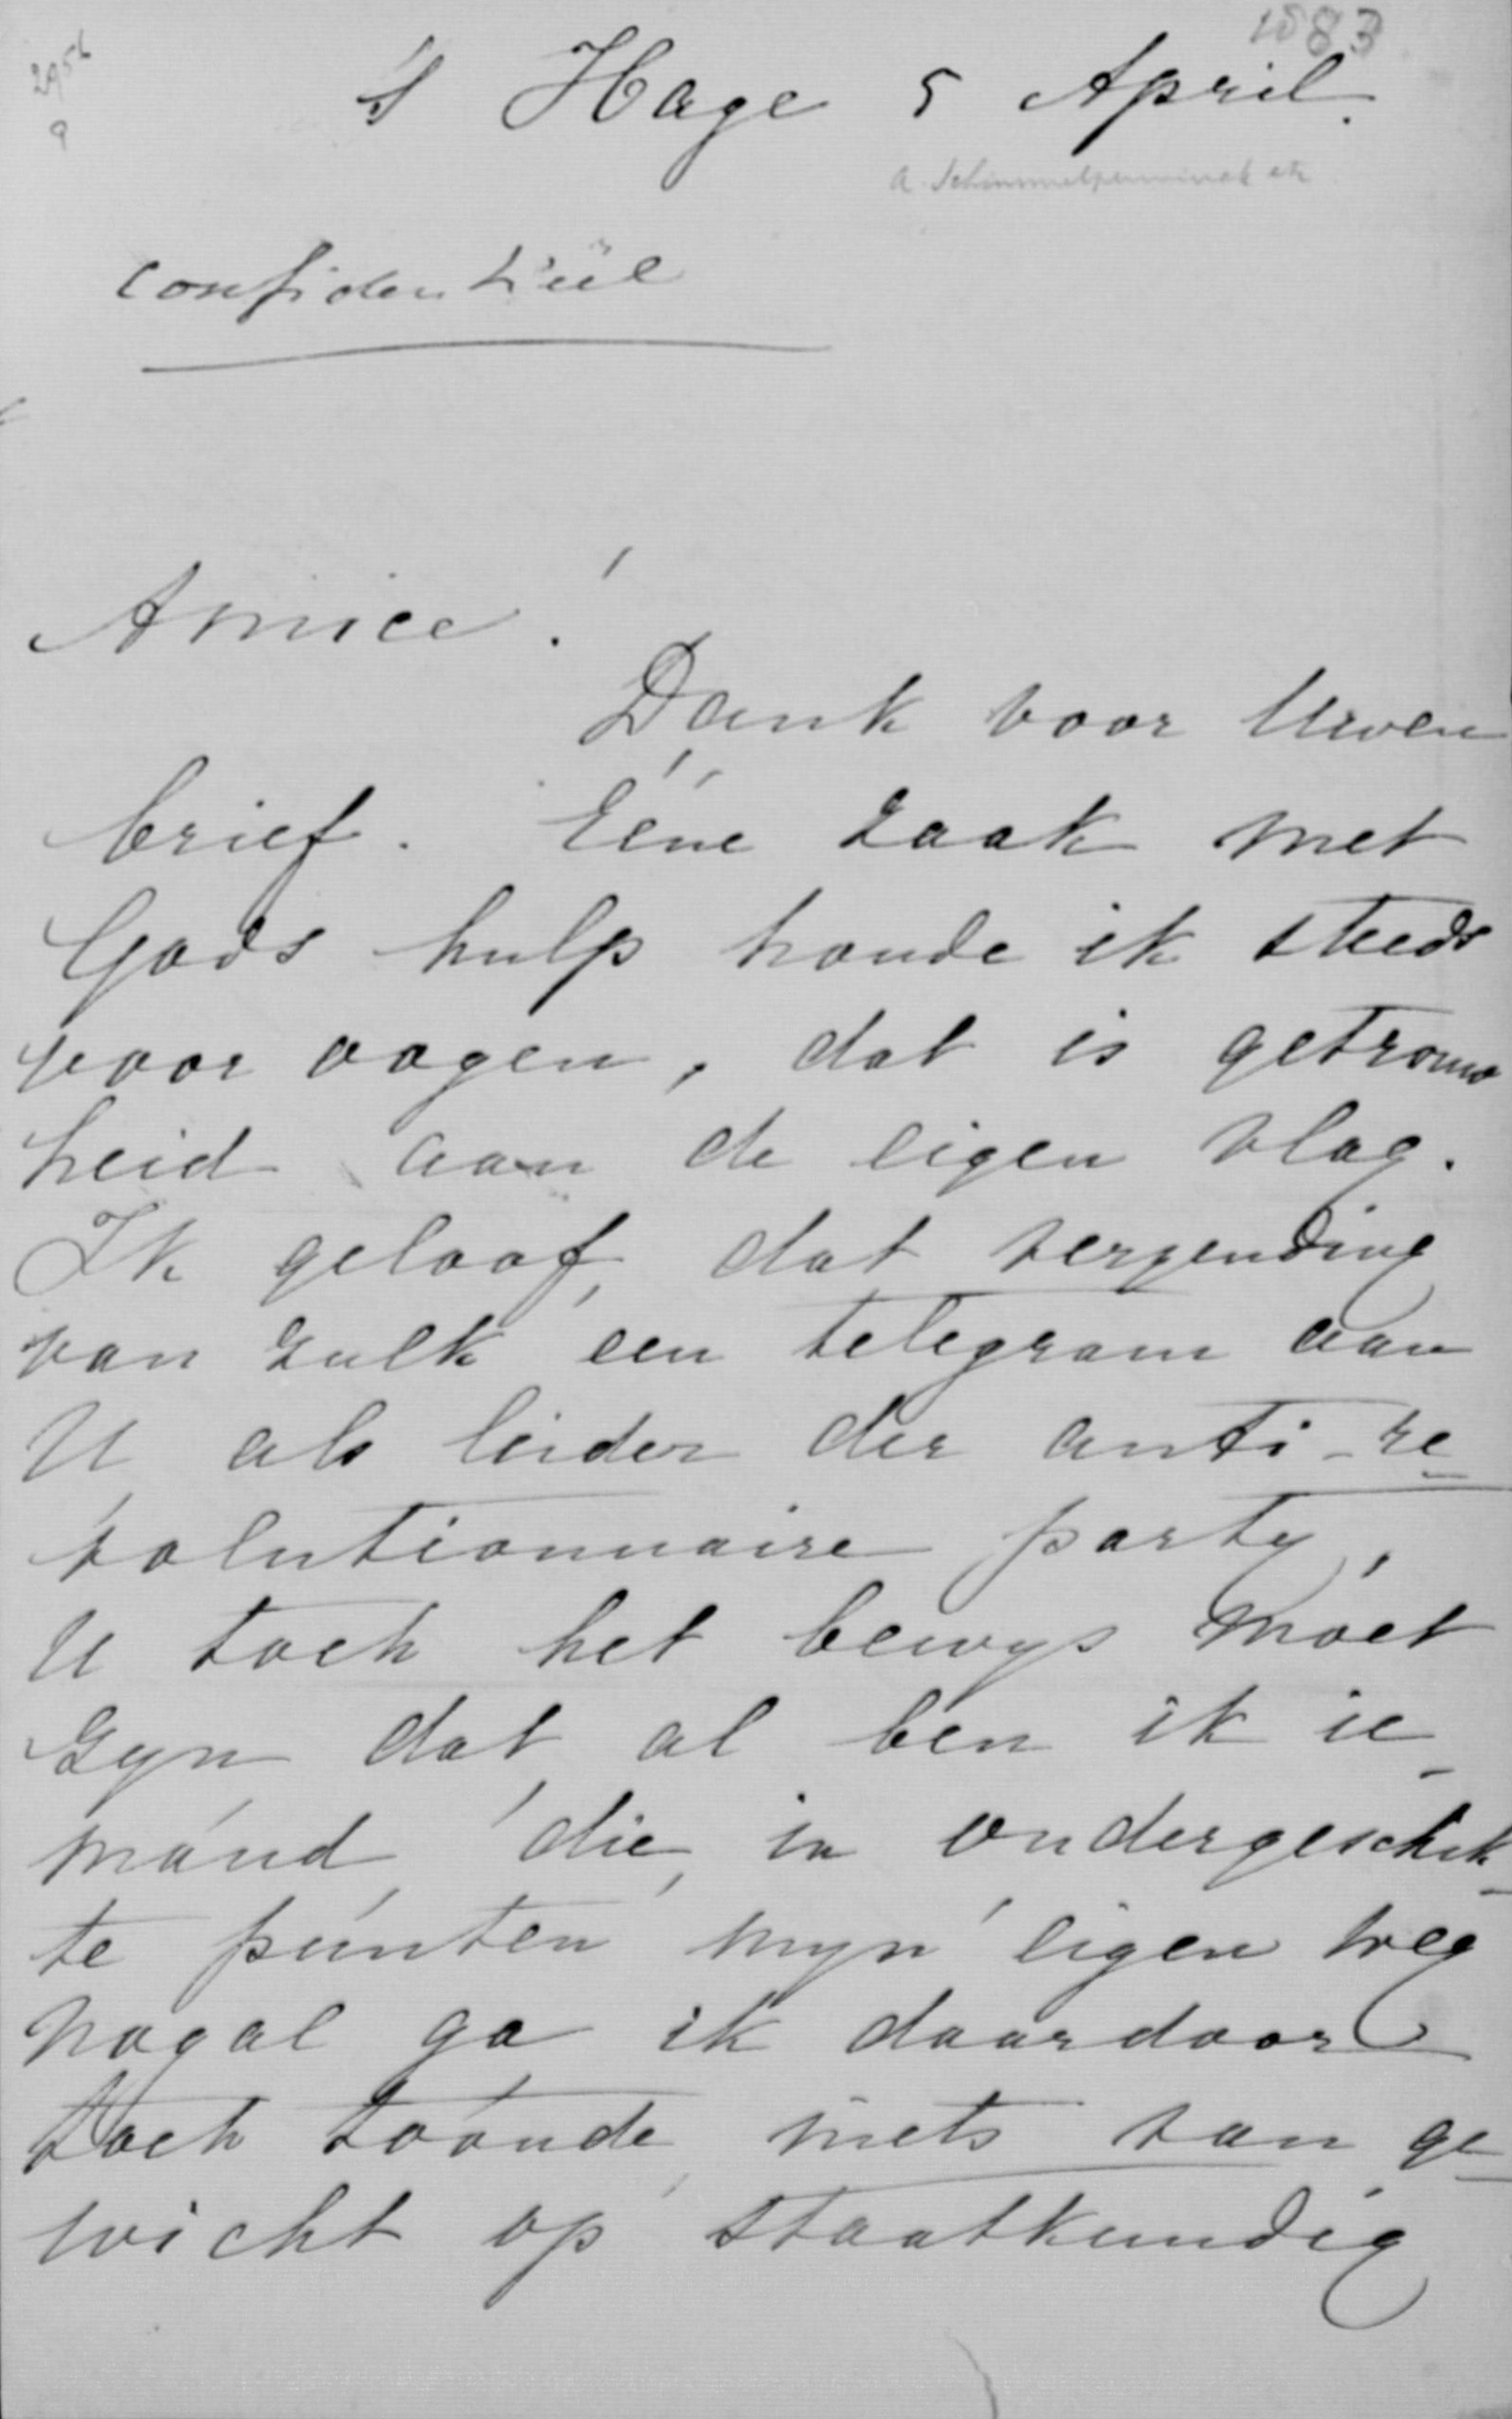 2956
9
1883
's Hage 5 April.
A. Schimmelpenninck etc
confidentieel
Amice!
Dank voor Uwen
brief. Eéne zaak met
Gods hulp houde ik steeds
voor oogen, dat is getrouw
heid aan de eigen vlag.
Ik geloof dat verzending
van zulk een telegram aan
U als leider der anti-re
volutionnaire party,
U toch het bewys moet
zyn dat al ben ik ie-
mand die in ondergeschik-
te punten myn eigen weg
nogal ga ik daardoor
toch toonde niets van ge-
wicht op staatkundig